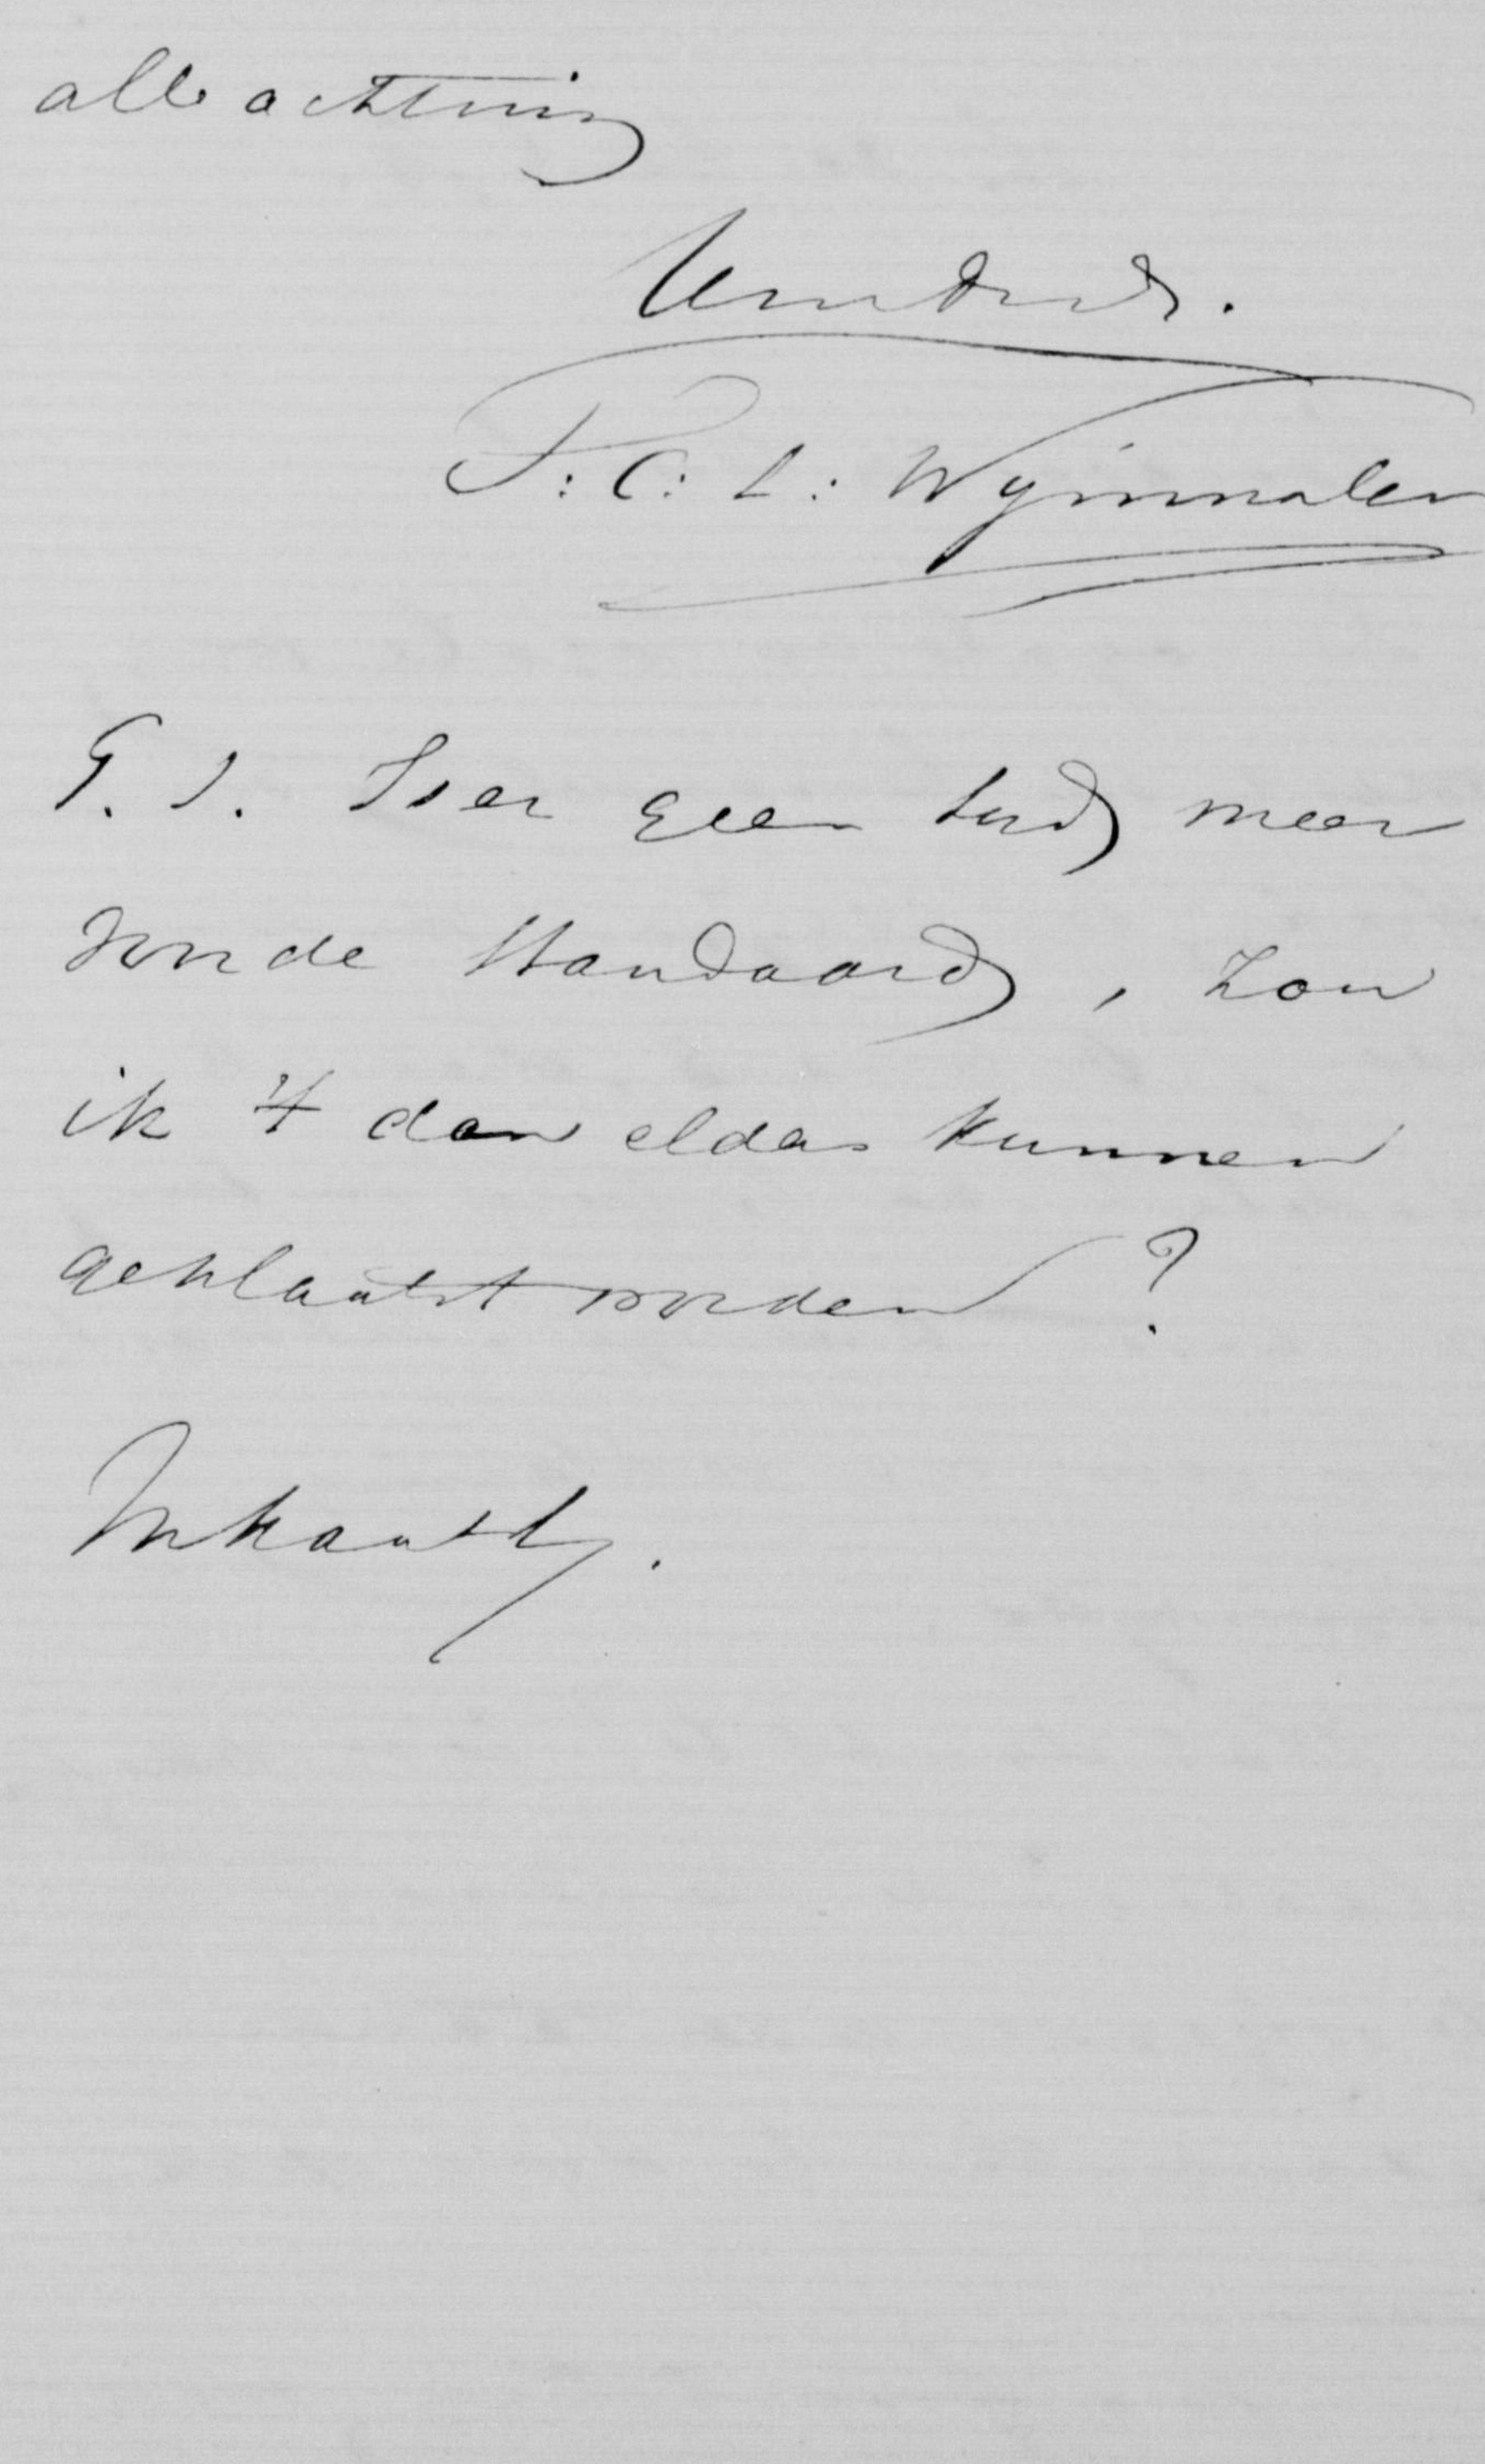 alle achting
Uw dw dr.
T: C: L: Wijnmalen
P. S. Is er geen tijd meer
voor de Standaard, zou
ik 't dan elders kunnen
geplaatst worden?